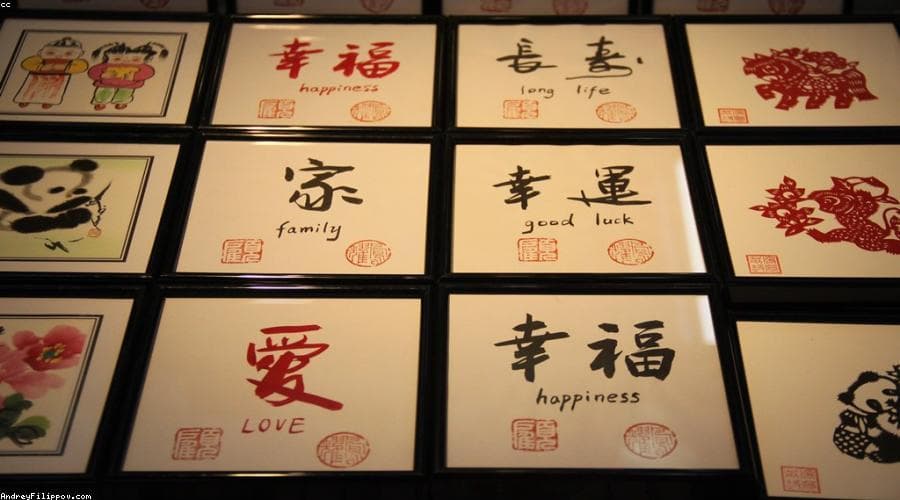 cc
幸福
happiness
長壽
long life
家
family
幸運
good luck
愛
LOVE
幸福
happiness
AndreyFilippov.com